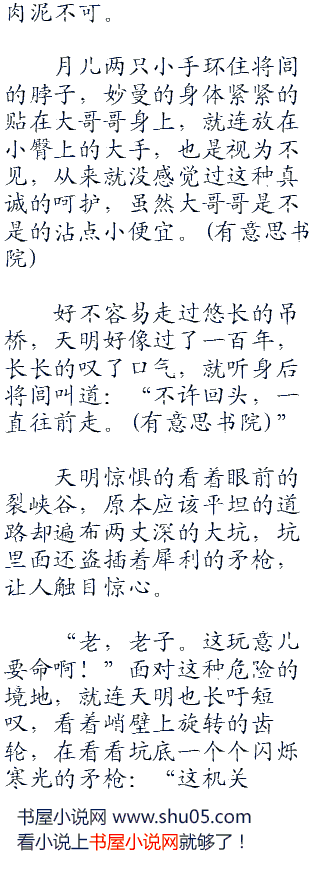 肉泥不可。
月儿两只小手环住将闾
的脖子，妙曼的身体紧紧的
贴在大哥哥身上，就连放在
小臀上的大手，也是视为不
见，从来就没感觉过这种真
诚的呵护，虽然大哥哥是不
是的沾点小便宜。(有意思书
院)
好不容易走过悠长的吊
桥，天明好像过了一百年，
长长的叹了口气，就听身后
将闾叫道：“不许回头，一
直往前走。(有意思书院)”
天明惊惧的看着眼前的
裂峡谷，原本应该平坦的道
路却遍布两丈深的大坑，坑
里面还盗插着犀利的矛枪，
让人触目惊心。
“老，老子。这玩意儿
要命啊！”面对这种危险的
境地，就连天明也长吁短
叹，看着峭壁上旋转的齿
轮，在看看坑底一个个闪烁
寒光的矛枪：“这机关
书屋小说网 www.shu05.com
看小说上书屋小说网就够了！